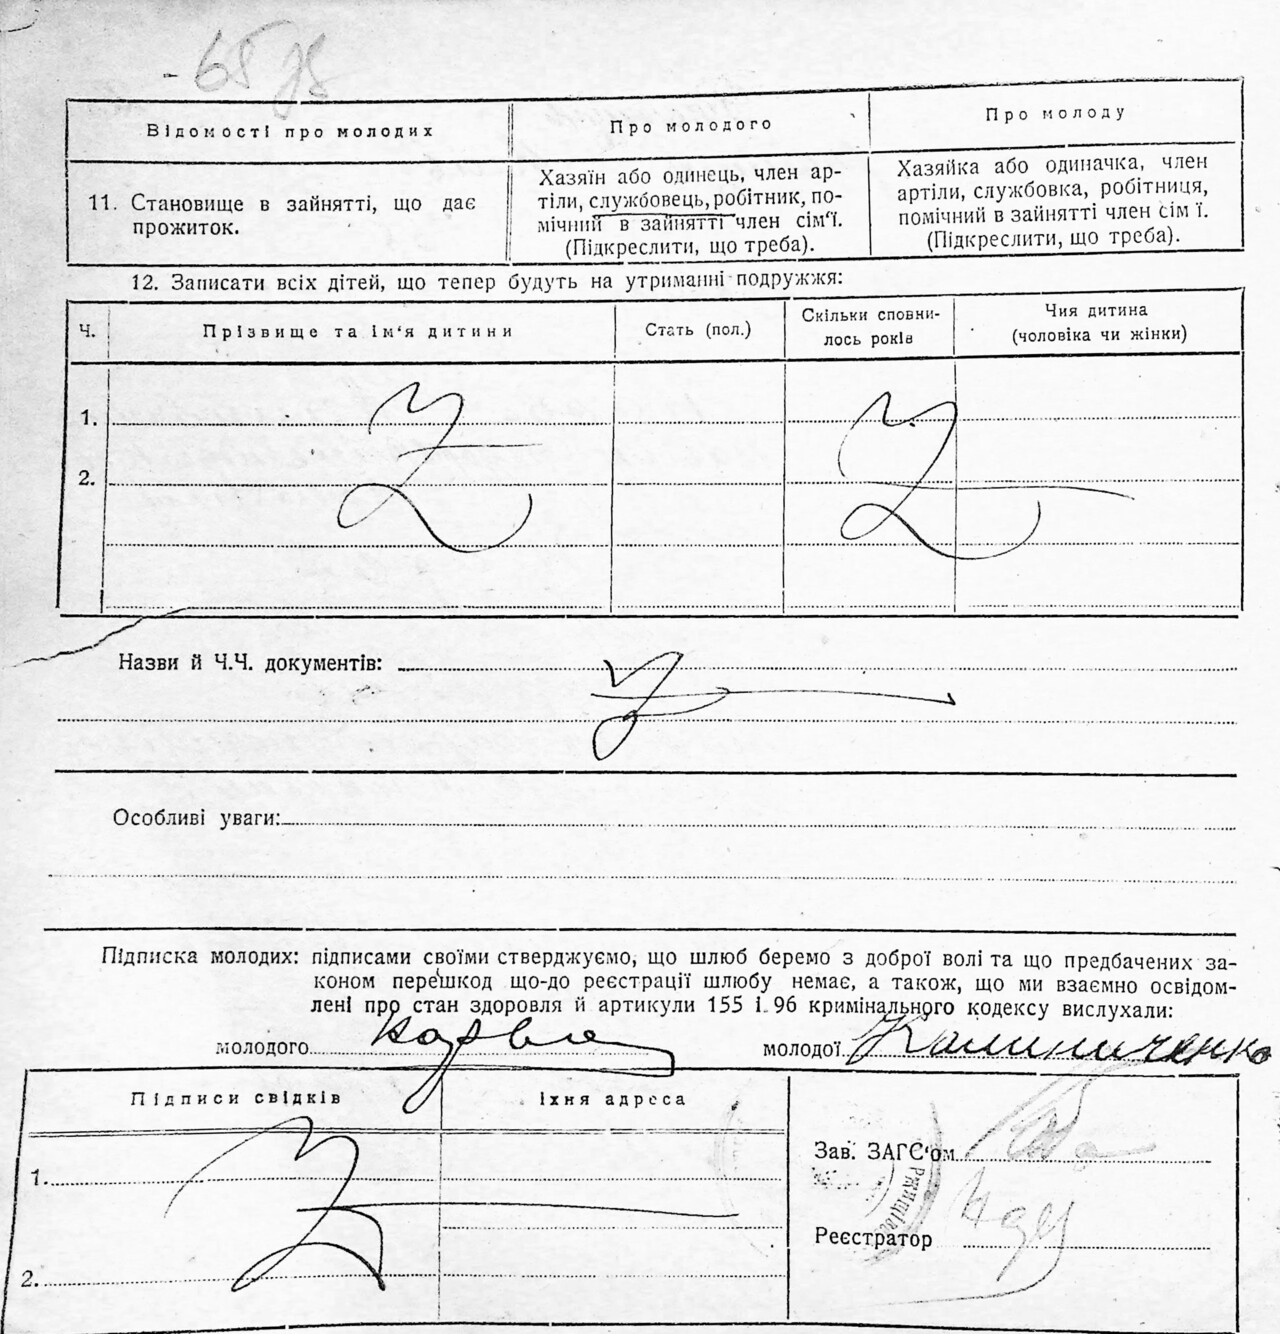 - 65 зв
Відомості про молодих
Про молодого
Про молоду
11. Становище в зайнятті, що дає
прожиток.
Хазяїн або одинець, член ар-
тіли, службовець, робітник, по-
мічний в зайнятті член сім'ї.
(Підкреслити, що треба).
Хазяйка або одиначка, член
артіли, службовка, робітниця,
помічний в зайнятті член сім ї.
(Підкреслити, що треба).
12. Записати всіх дітей, що тепер будуть на утриманні подружжя:
Ч.
Прізвище та ім'я дитини
Стать (пол.)
Скільки сповни-
лось років
Чия дитина
(чоловіка чи жінки)
1.
2.
Назви й Ч.Ч. документів:
Особливі уваги:
Підписка молодих: підписами своїми стверджуємо, що шлюб беремо з доброї волі та що предбачених за-
коном перешкод що-до реєстрації шлюбу немає, а також, що ми взаємно освідом-
лені про стан здоровля й артикули 155 і 96 кримінального кодексу вислухали:
молодого
молодої Калиниченко
Підписи свідків
Їхня адреса
1.
2.
Зав. ЗАГС'ом
Реєстратор